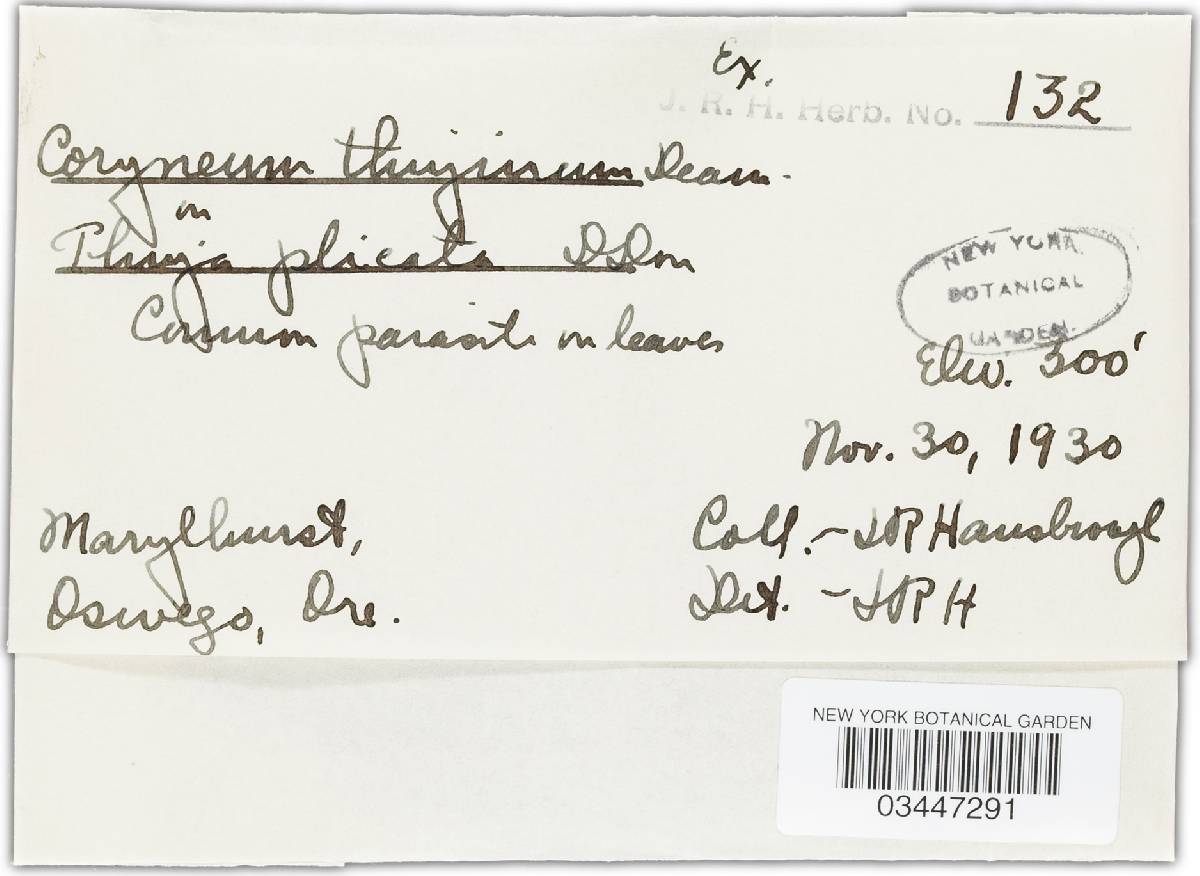 Ex.
J. R. H. Herb. No. 132
Coryneum thujinum Dearn.
on
Thuja plicata D Don
Common parasite on leaves
NEW YORK
BOTANICAL
GARDEN.
Elev. 300'
Nov. 30, 1930
Marylhurst,
Coll. - JR Hansbrough
Oswego, Ore.
Det. - JRH
NEW YORK BOTANICAL GARDEN
03447291